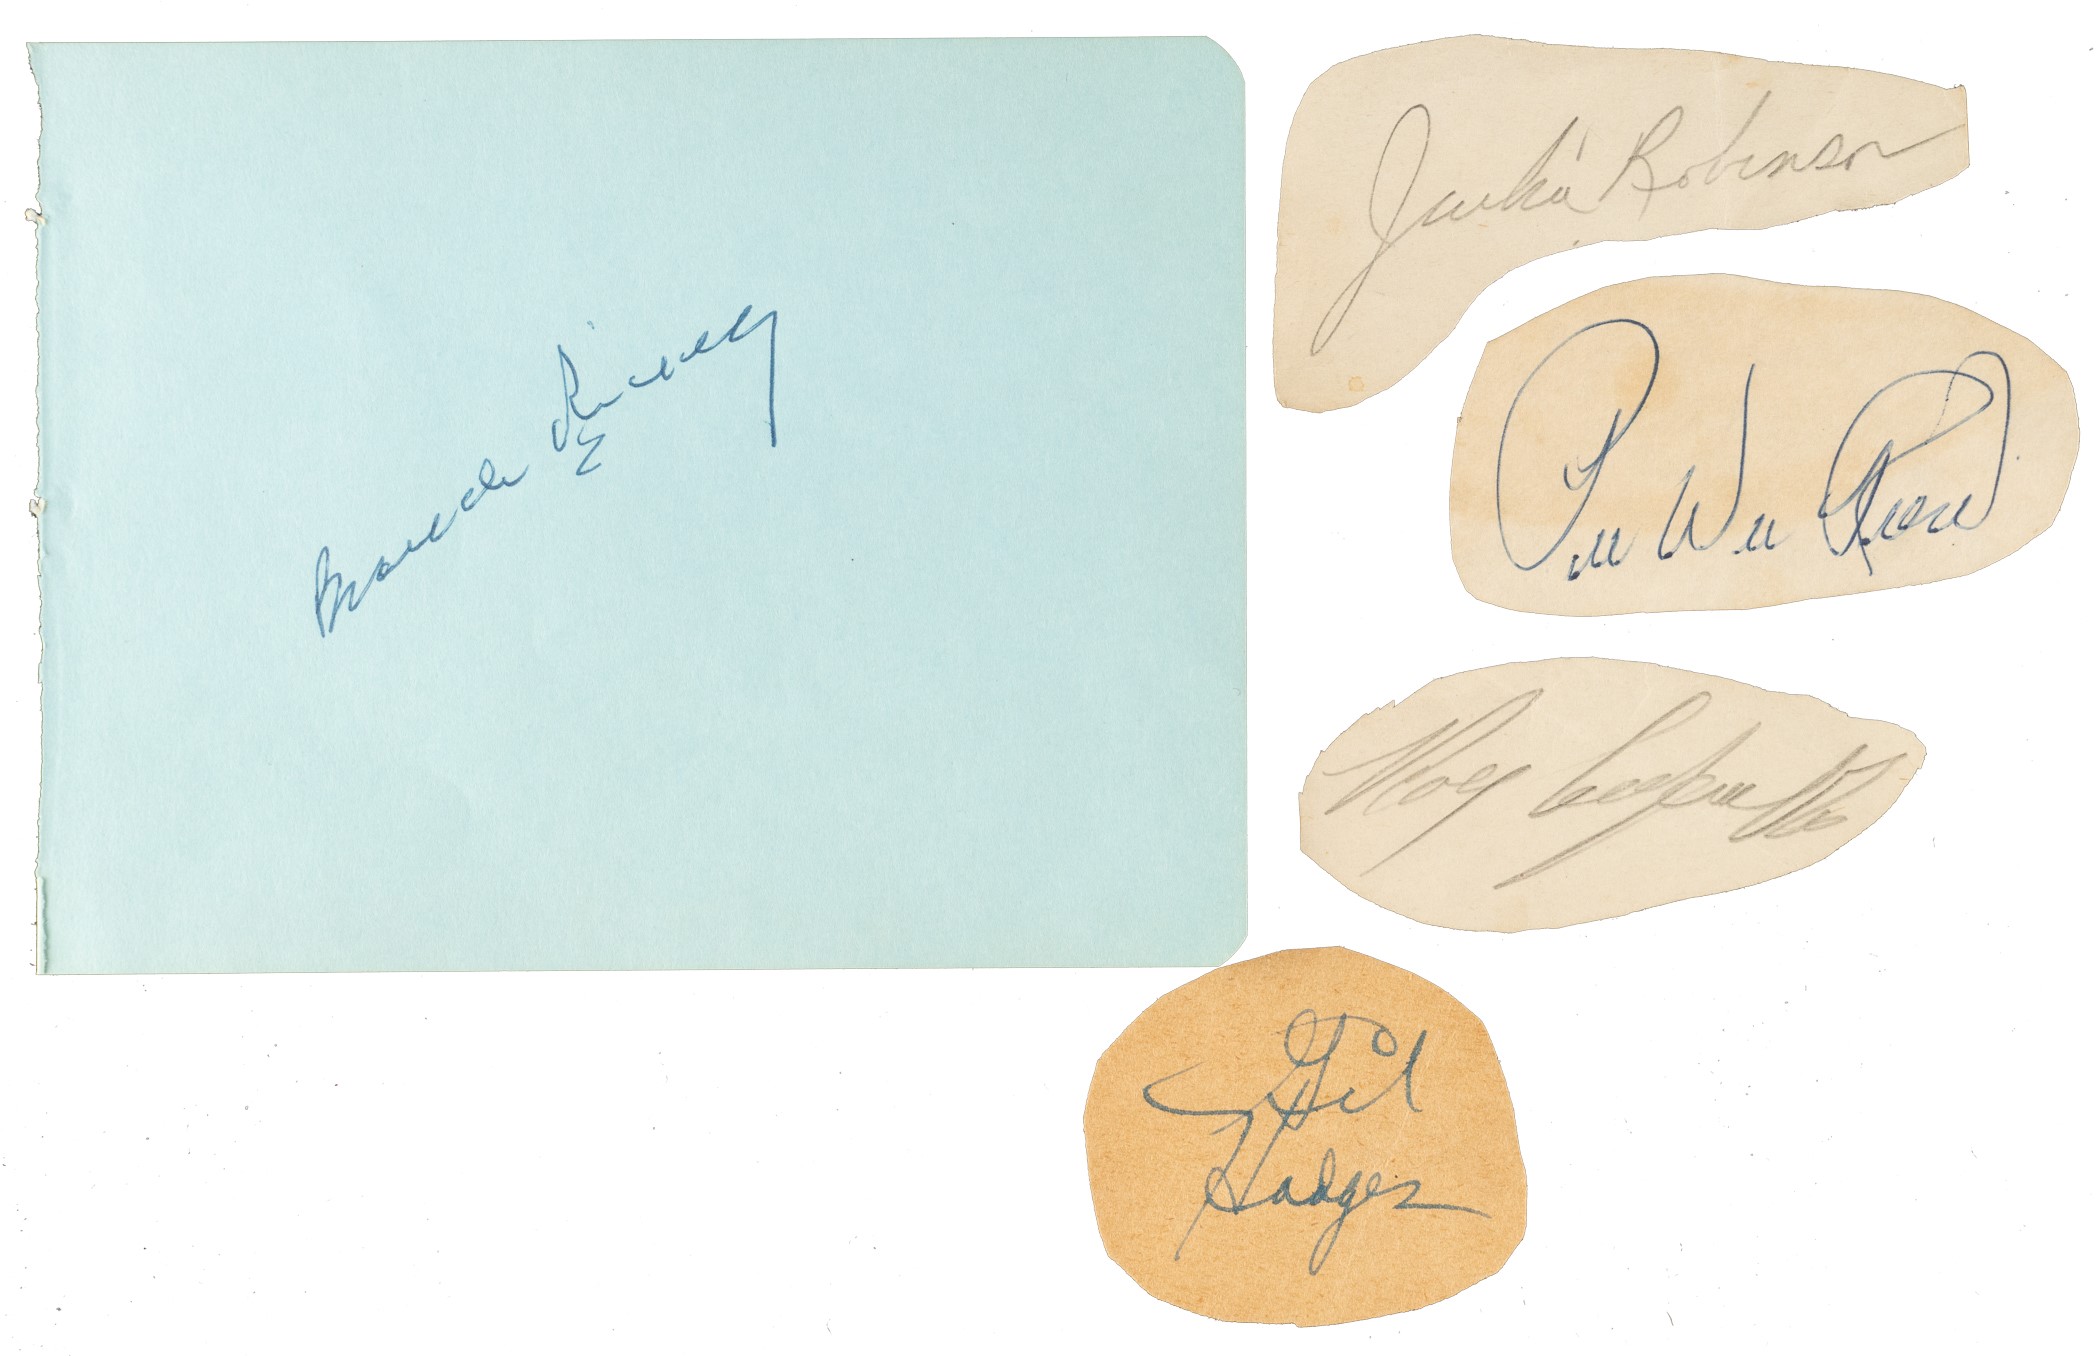 Branch Rickey
Jackie Robinson
Pee Wee Reese
Roy Campanella
Gil
Hodges